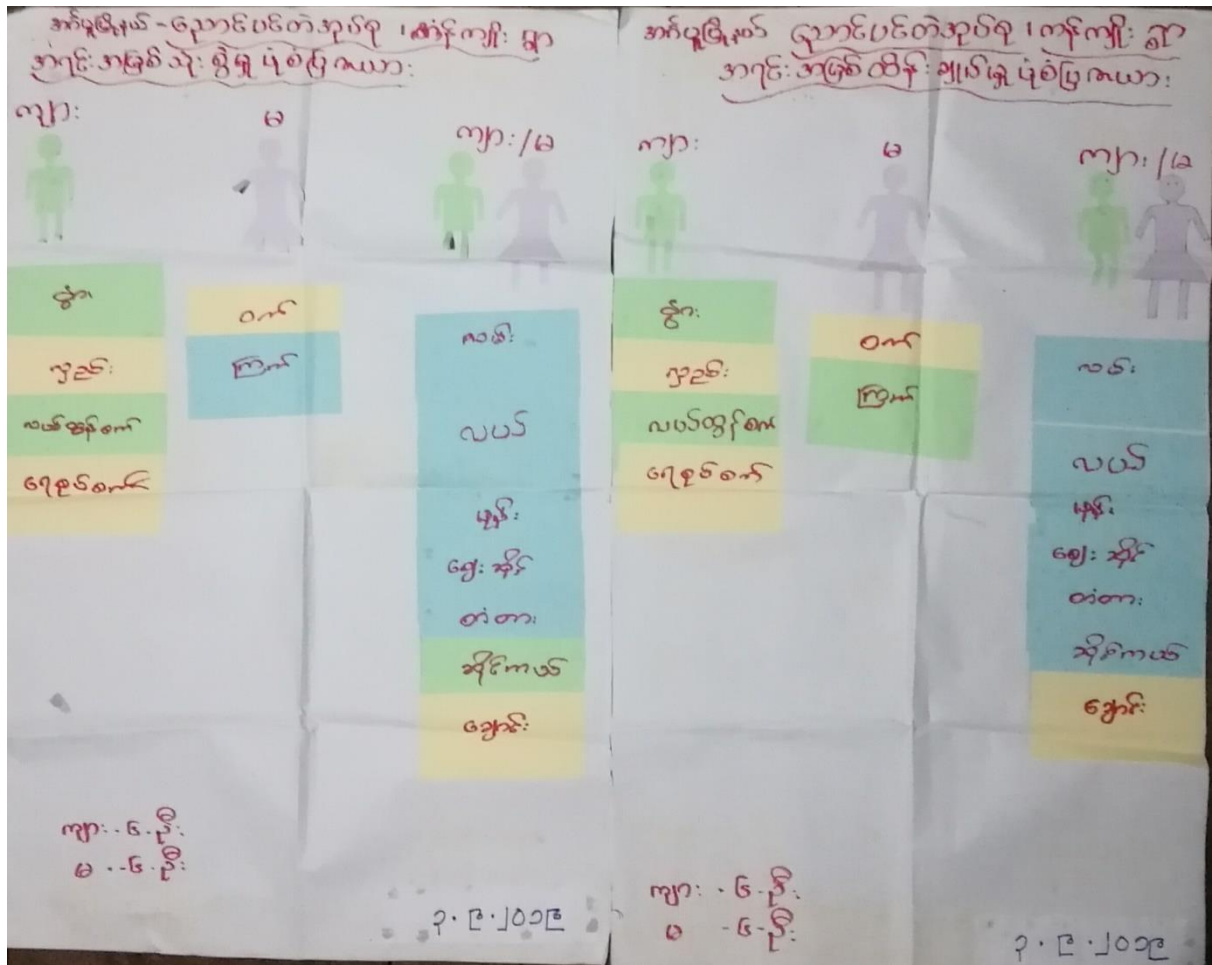 အင်္ဂပူမြို့နယ် - ညောင်ပင်တဲအုပ်စု ၊ ကန်ကျိုး ရွာ
အရင်းအမြစ် သုံးစွဲမှု ပုံစံပြဇယား
ကျား
မ
ကျား/မ
နွား
လှည်း
လယ်ထွန်စက်
ရေစုပ်စက်
ဝက်
ကြက်
လမ်း
လယ်
မုန်း
ဈေးဆိုင်
တံတား
ဆိုင်ကယ်
ချောင်း
ကျား - ၆ - ဦး
မ - ၆ - ဦး
၃.၉.၂၀၁၉
ညောင်ပင်တဲအုပ်စု ၊ ကန်ကျိုး ရွာ
အရင်းအမြစ် ထိန်းချုပ်မှု ပုံစံပြဇယား
ကျား
မ
ကျား/မ
နွား
လှည်း
လယ်ထွန်စက်
ရေစုပ်စက်
ဝက်
ကြက်
လမ်း
လယ်
မုန်း
ဈေးဆိုင်
တံတား
ဆိုင်ကယ်
ချောင်း
ကျား - ၆ - ဦး
မ - ၆ - ဦး
၃.၉.၂၀၁၉